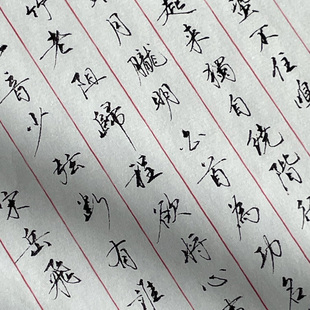 蛩不住鳴
起來獨自繞階
月朧明 白首為功名
竹老阻歸程欲將心
音少弦斷有誰
宋岳飛